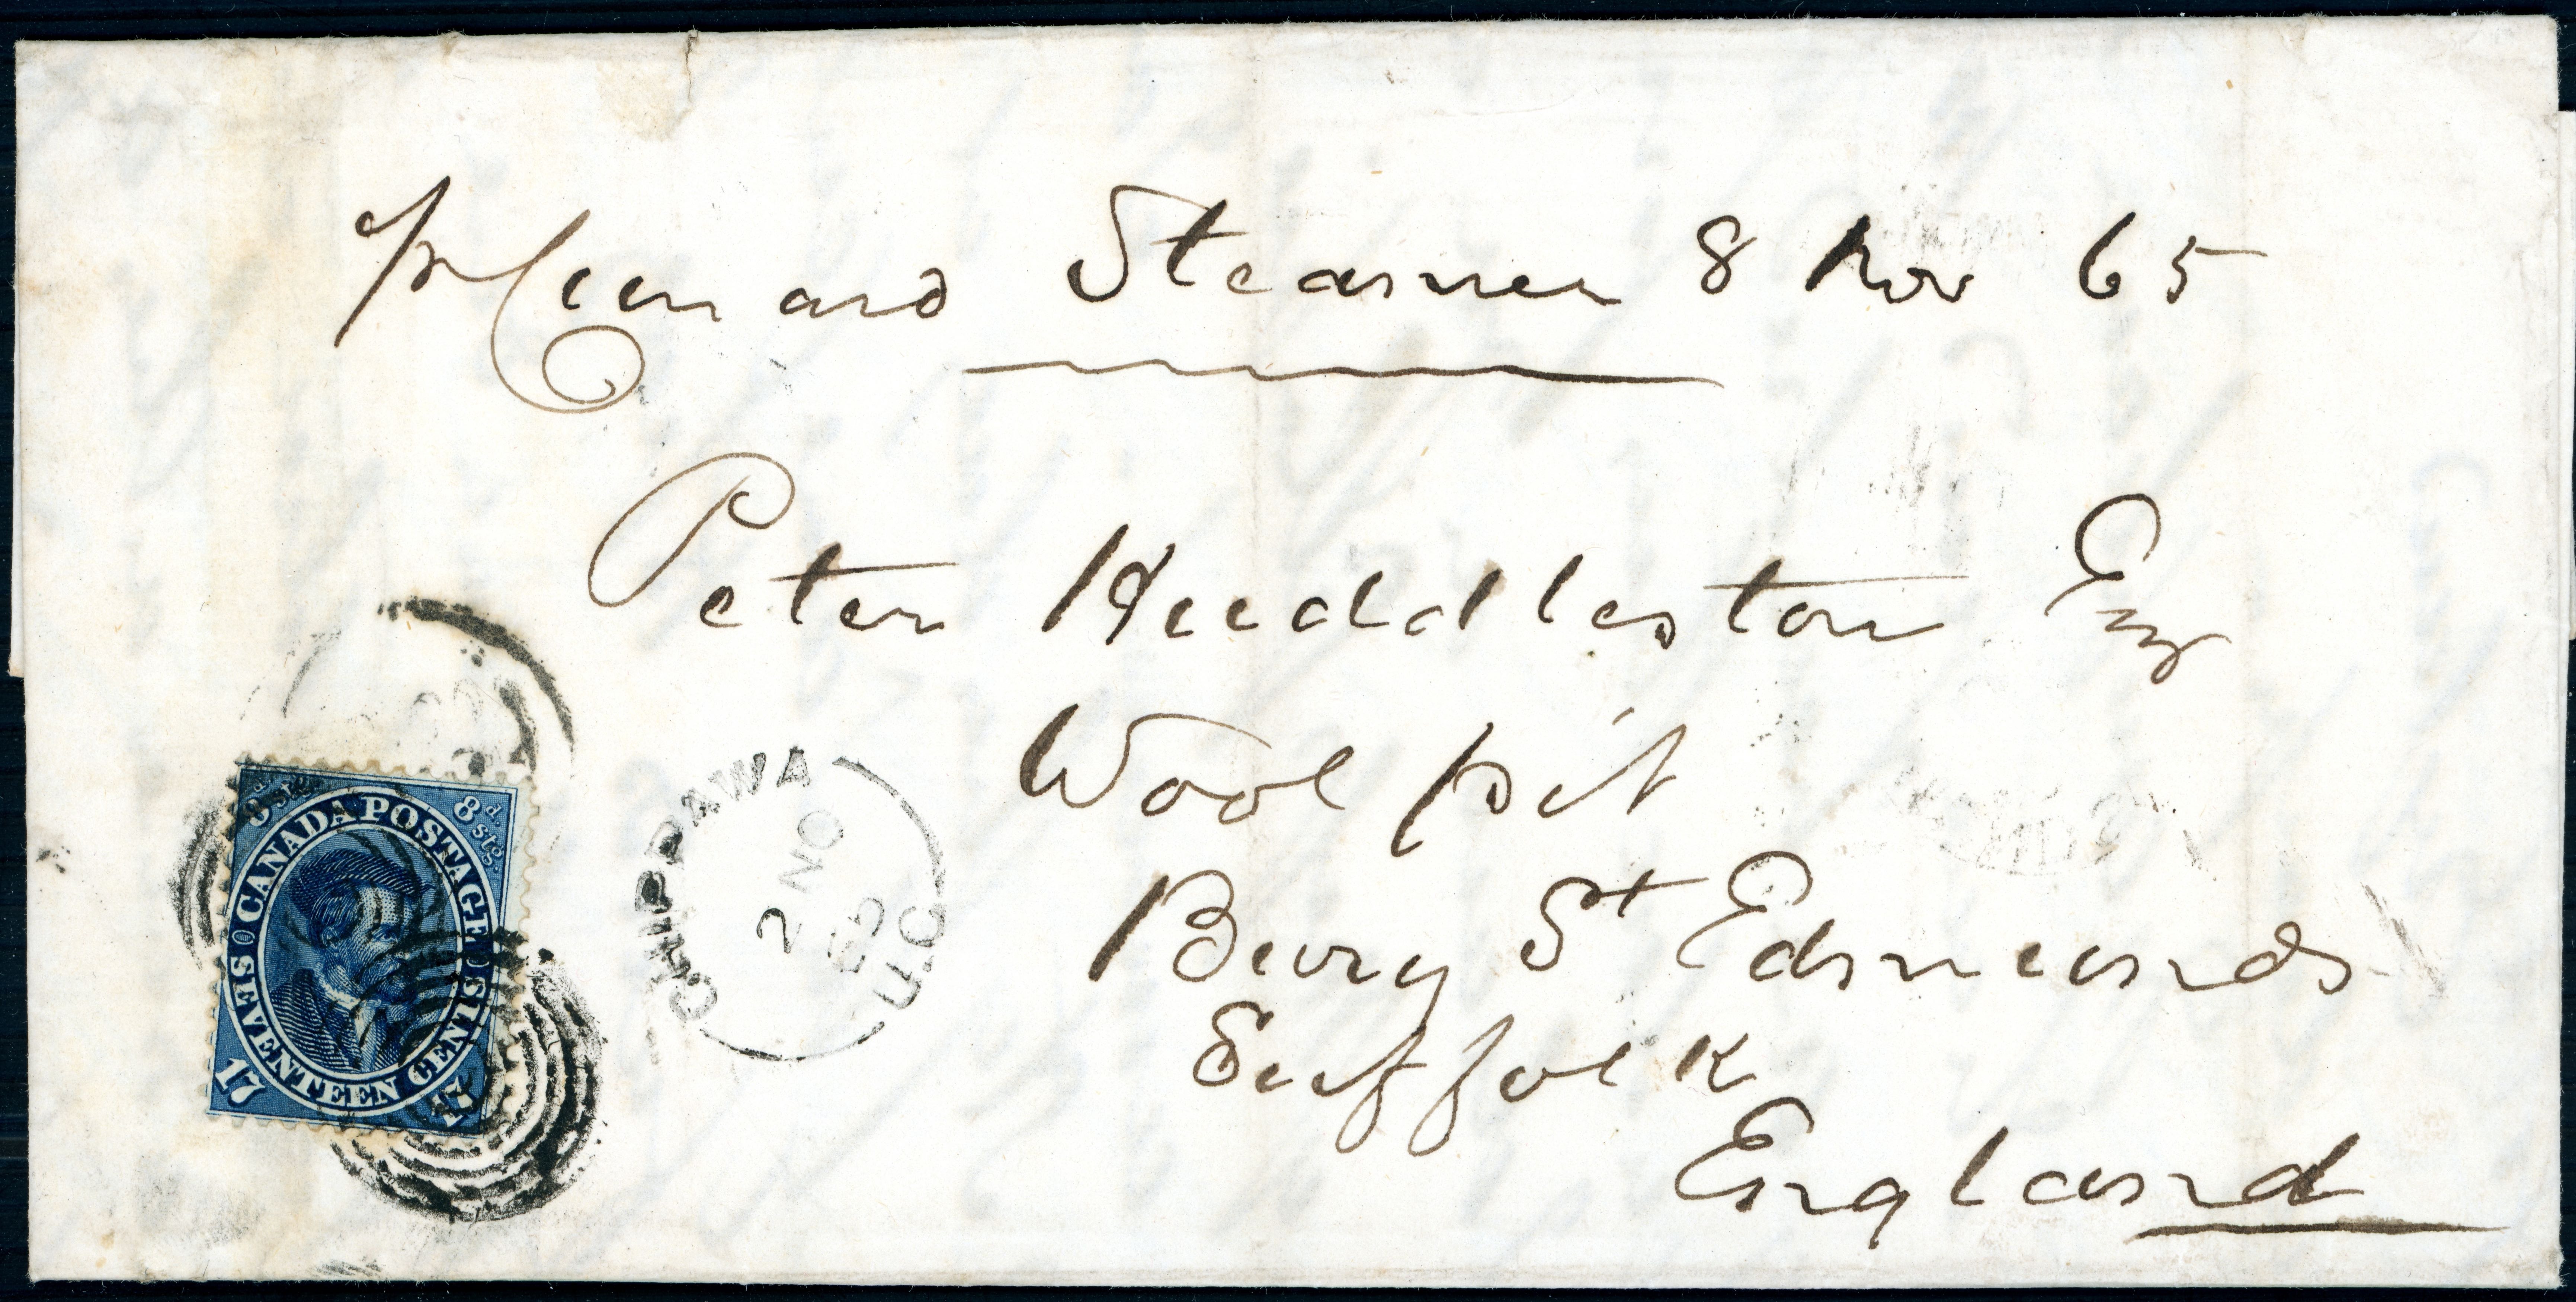 pr Cunard Steamer 8 Nov 65
Peter Huddleston Esq
Woolpit
Bury St Edmunds
Suffolk
England
CHIPPAWA
2 NO
65
U.C
8d stg. 8d. stg.
CANADA POSTAGE
SEVENTEEN CENTS
17 17